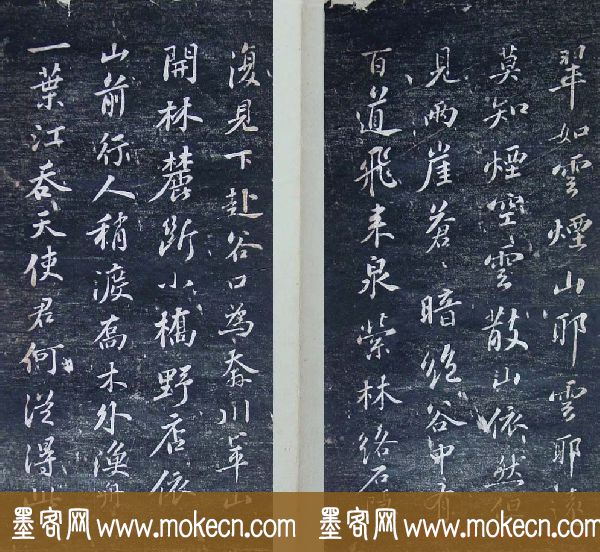 翠如雲煙山耶雲耶遠
莫知煙空雲散山依然但
見兩崖蒼〻暗絕谷中有
百道飛来泉縈林絡石隱
復見下赴谷口為奔川平山
開林麓斷小橋野店依
山前行人稍渡喬木外漁舟
一葉江吞天使君何從得此
墨客网 www.mokecn.com
墨客网 www.mokecn.com